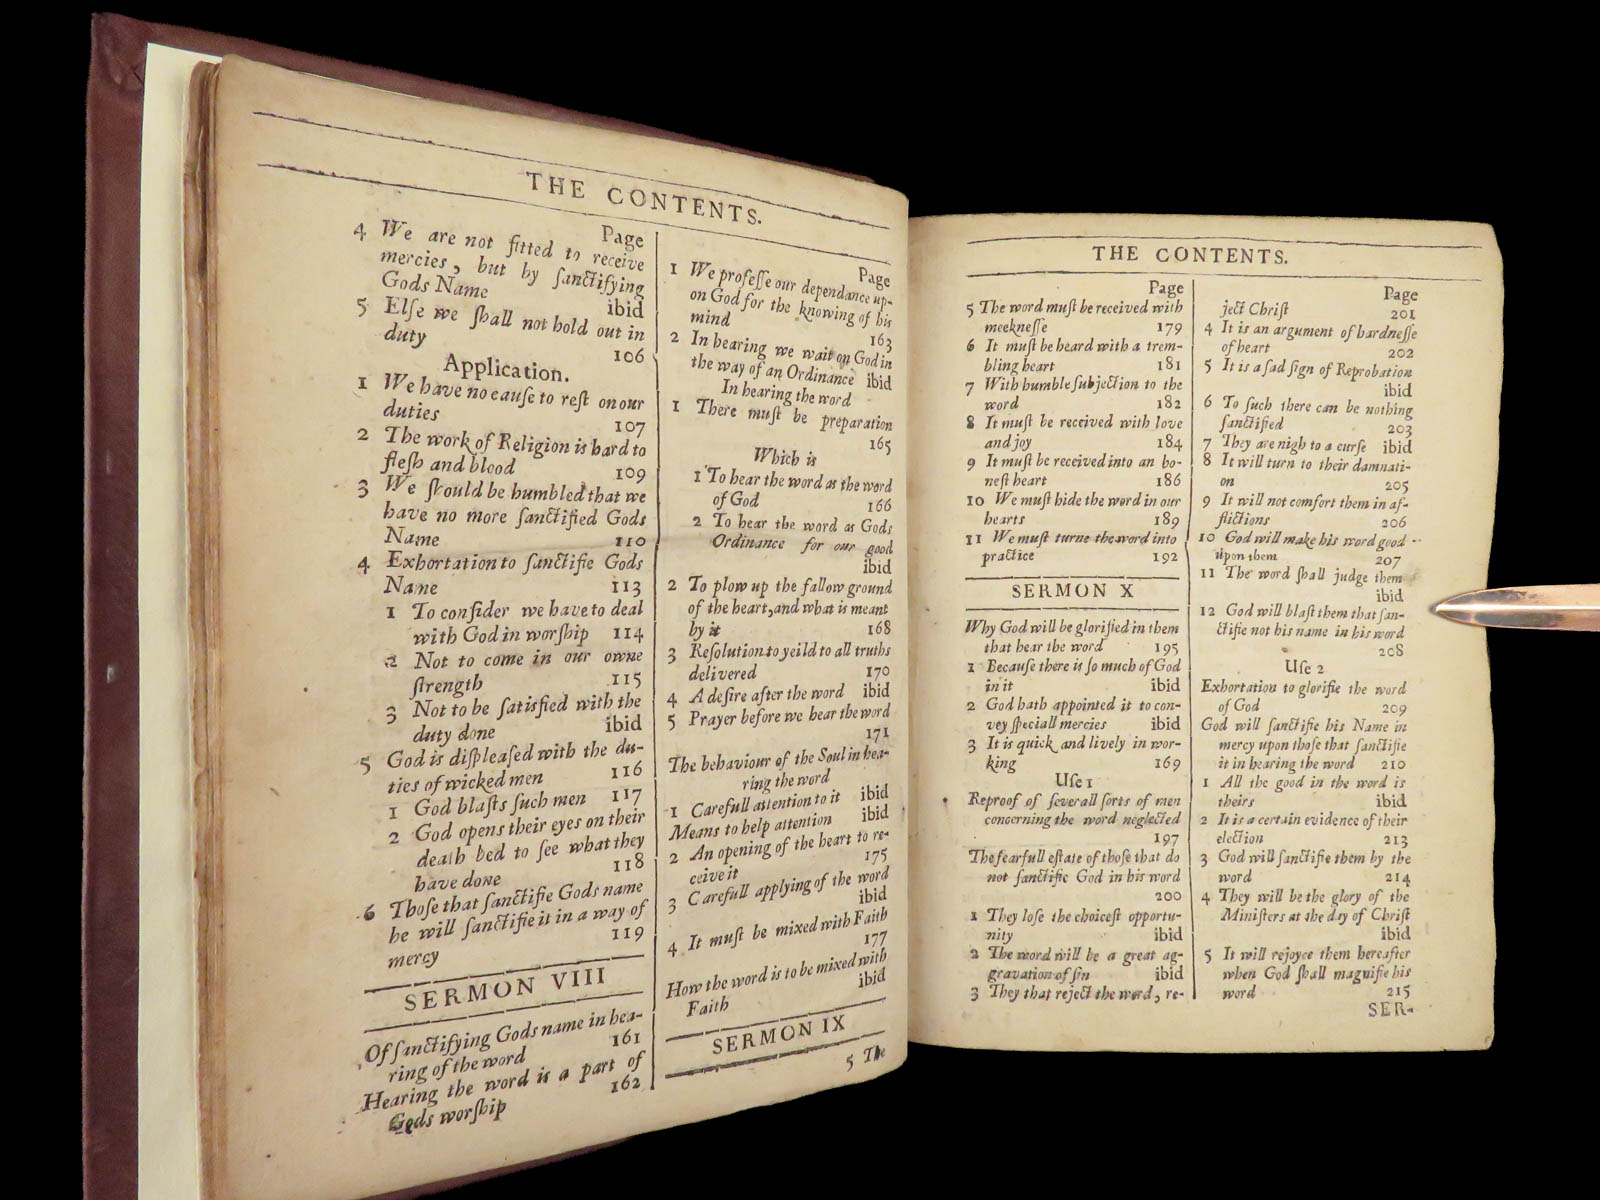 THE CONTENTS.
Page
4 We are not fitted to receive
mercies, but by ſanctifying
Gods Name ibid
5 Elſe we ſhall not hold out in
duty 106
Application.
1 We have no cauſe to reſt on our
duties 107
2 The work of Religion is hard to
fleſh and blood 109
3 We ſhould be humbled that we
have no more ſanctified Gods
Name 110
4 Exhortation to ſanctifie Gods
Name 113
1 To conſider we have to deal
with God in worſhip 114
2 Not to come in our owne
ſtrength 115
3 Not to be ſatisfied with the
duty done ibid
5 God is diſpleaſed with the du-
ties of wicked men 116
1 God blaſts ſuch men 117
2 God opens their eyes on their
death bed to ſee what they
have done 118
6 Thoſe that ſanctifie Gods name
he will ſanctifie it in a way of
mercy 119
SERMON VIII
Of ſanctifying Gods name in hea-
ring of the word 161
Hearing the word is a part of
Gods worſhip 162
Page
1 We profeſſe our dependance up-
on God for the knowing of his
mind 163
2 In hearing we wait on God in
the way of an Ordinance ibid
In hearing the word
1 There muſt be preparation
165
Which is
1 To hear the word as the word
of God 166
2 To hear the word as Gods
Ordinance for our good
ibid
2 To plow up the fallow ground
of the heart, and what is meant
by it 168
3 Reſolution to yeild to all truths
delivered 170
4 A deſire after the word ibid
5 Prayer before we hear the word
171
The behaviour of the Soul in hea-
ring the word
1 Carefull attention to it ibid
Means to help attention ibid
2 An opening of the heart to re-
ceive it 175
3 Carefull applying of the word
ibid
4 It muſt be mixed with Faith
177
How the word is to be mixed with
Faith ibid
SERMON IX
5 The
THE CONTENTS.
Page
5 The word muſt be received with
meekneſſe 179
6 It muſt be heard with a trem-
bling heart 181
7 With humble ſubjection to the
word 182
8 It muſt be received with love
and joy 184
9 It muſt be received into an ho-
neſt heart 186
10 We muſt hide the word in our
hearts 189
11 We muſt turne the word into
practice 192
SERMON X
Why God will be glorified in them
that hear the word 195
1 Becauſe there is ſo much of God
in it ibid
2 God hath appointed it to con-
vey ſpeciall mercies ibid
3 It is quick and lively in wor-
king 169
Uſe 1
Reproof of ſeverall ſorts of men
concerning the word neglected
197
The fearfull eſtate of thoſe that do
not ſanctifie God in his word
200
1 They loſe the choiceſt opportu-
nity ibid
2 The word will be a great ag-
gravation of ſin ibid
3 They that reject the word, re-
Page
ject Chriſt 201
4 It is an argument of hardneſſe
of heart 202
5 It is a ſad ſign of Reprobation
ibid
6 To ſuch there can be nothing
ſanctified 203
7 They are nigh to a curſe ibid
8 It will turn to their damnati-
on 205
9 It will not comfort them in af-
flictions 206
10 God will make his word good
upon them 207
11 The word ſhall judge them
ibid
12 God will blaſt them that ſan-
ctifie not his name in his word
208
Uſe 2
Exhortation to glorifie the word
of God 209
God will ſanctifie his Name in
mercy upon thoſe that ſanctifie
it in hearing the word 210
1 All the good in the word is
theirs ibid
2 It is a certain evidence of their
election 213
3 God will ſanctifie them by the
word 214
4 They will be the glory of the
Miniſters at the day of Chriſt
ibid
5 It will rejoyce them hereafter
when God ſhall magnifie his
word 215
SER-